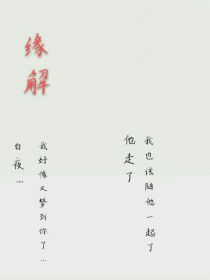 缘解
我也该随他一起了
他走了
我好像又梦到你了…
白夜…